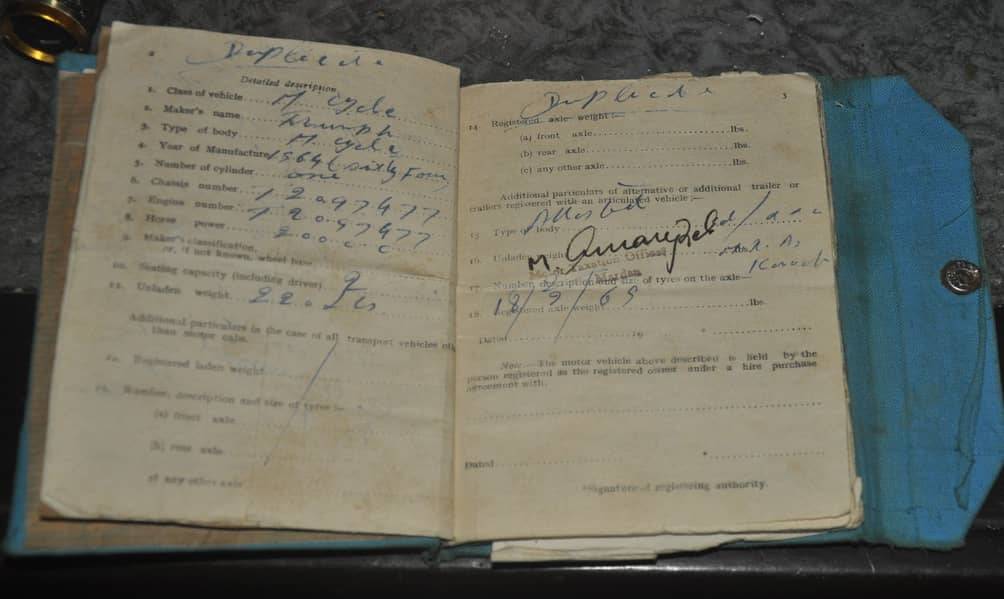 2
Duplicate
Detailed description
1. Class of vehicle.... M. Cycle
2. Maker's name.... Triumph
3. Type of body.... M. Cycle
4. Year of Manufacture 1964 (Sixty Four)
5. Number of cylinder one
6. Chassis number.. 12097477
7. Engine number.. 12097477
8. Horse power.... 200 c c
9. Maker's classification,
or, if not known, wheel base
10. Seating capacity (including driver) 2
11. Unladen weight. 220
Additional particulars in the case of all transport vehicles
than motor cabs.
Registered laden weight
Number, description and size of tyres :—
(a) front axle
(b) rear axle
any other axle
Duplicate
3
14. Registered axle weight :—
(a) front axle....lbs.
(b) rear axle....lbs.
(c) any other axle....lbs.
Additional particulars of alternative or additional trailer or
trailers registered with an articulated vehicle ;—
15. Type of body
16. Unladen weight
Motor Taxation Officer
Mardan
17. Number, description and size of tyres on the axle—
18/9/69
18. Registered axle weight....lbs.
Dated....19 *....
Note.—The motor vehicle above described is held by the
person registered as the registered owner under a hire purchase
agreement with.
Dated.... *....
*Signature of registering authority.